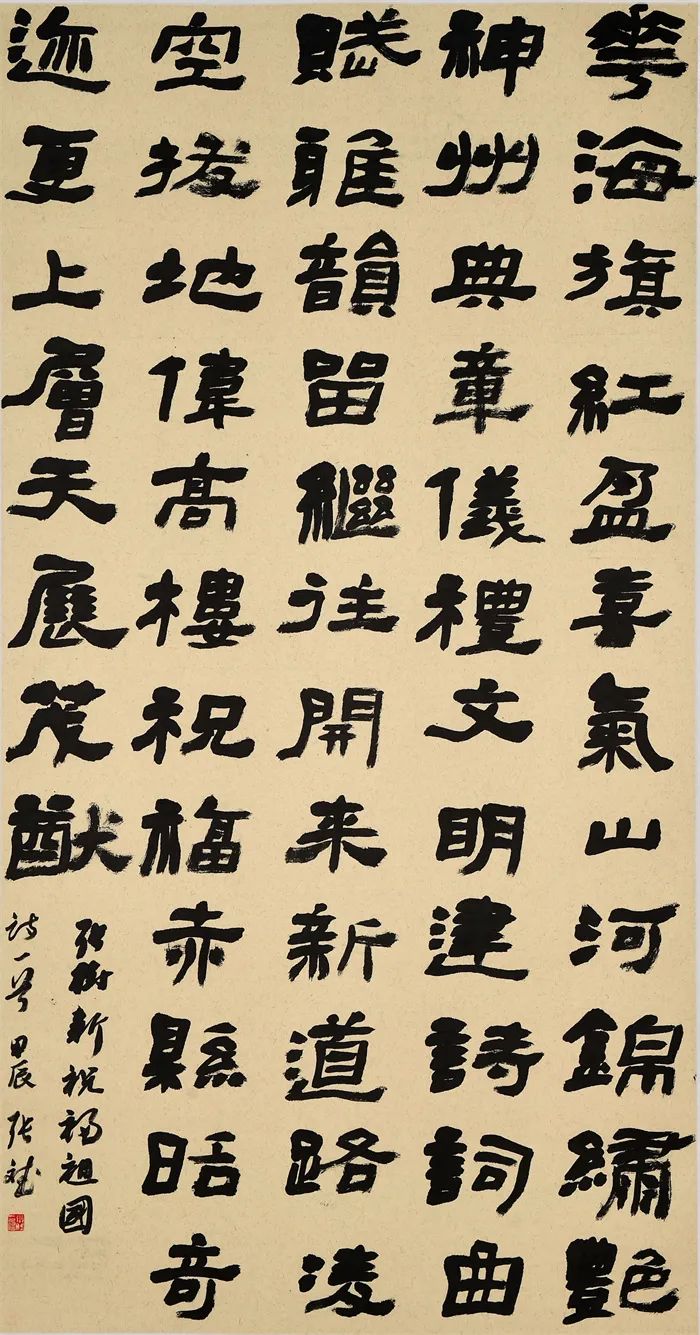 華海旗紅盈喜氣山河錦繡艷
神州典章儀禮文明建詩詞曲
賦雅韻留繼往開来新道路凌
空拔地偉高樓祝福赤縣奇
迹更上層天展茂猷
張樹新祝福祖國
詩一首甲辰張斌